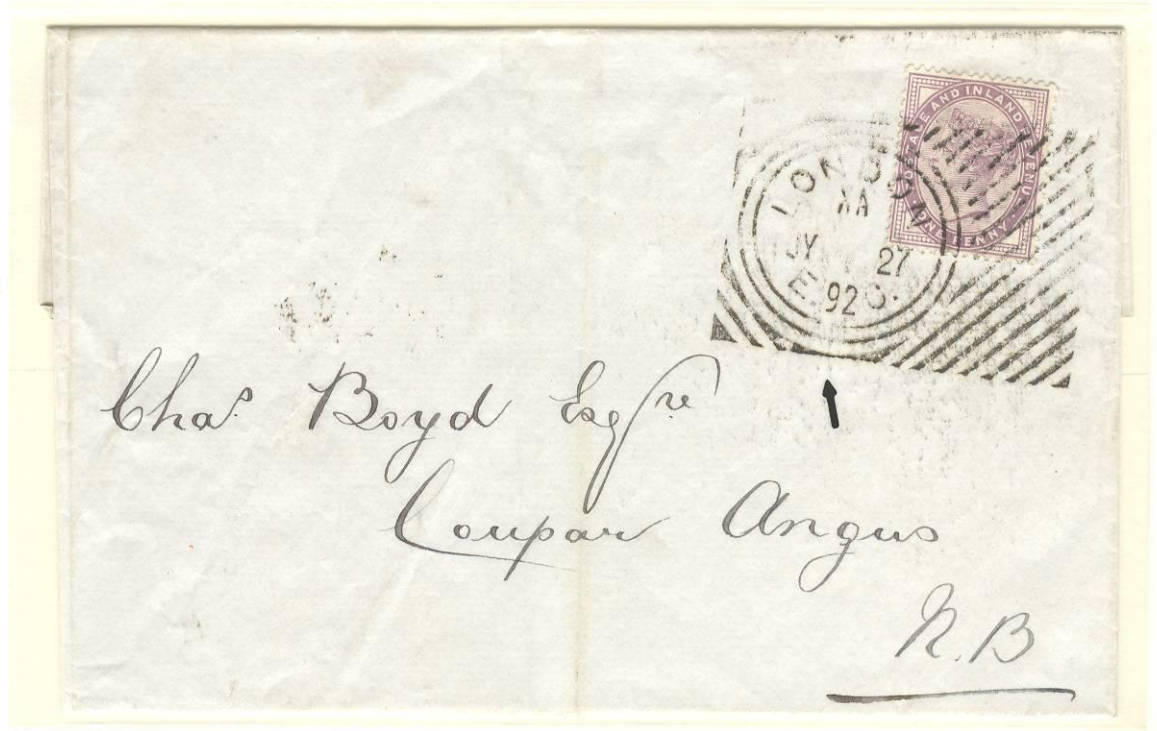 POSTAGE AND INLAND REVENUE
ONE PENNY
LONDON
AA
JY 27
92
E.C.
Chas. Boyd Esqre
Coupar Angus
N.B